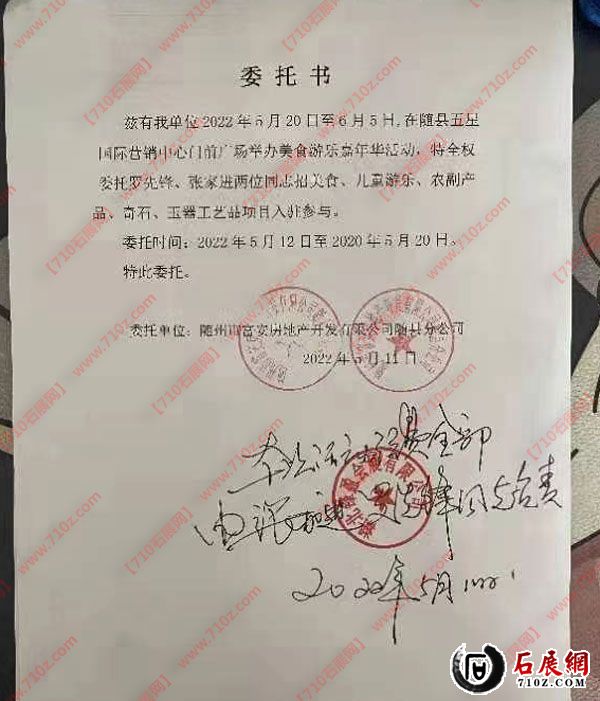 委托书
兹有我单位2022年5月20日至6月5日,在随县五星
国际营销中心门前广场举办美食游乐嘉年华活动,特全权
委托罗先锋、张家进两位同志招美食、儿童游乐、农副产
品、奇石、玉器工艺品项目入驻参与。
委托时间:2022年5月12日至2020年5月20日。
特此委托。
委托单位:随州市富安房地产开发有限公司随县分公司
2022年5月11日
本次活动 全部
由张 先锋同志负责
2022年5月
会展有限公司
石展網
710z.com
【710石展网】www.710z.com